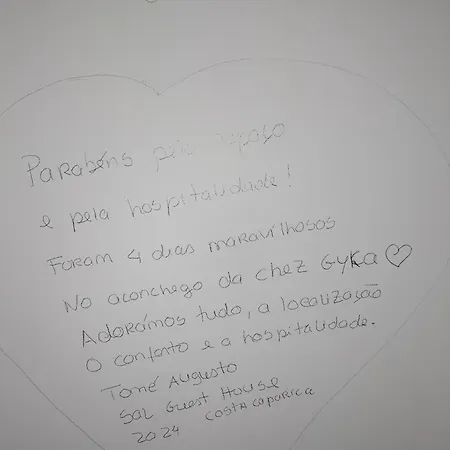 Parabéns pelo espaço
e pela hospitalidade!
Foram 4 dias maravilhosos
No aconchego da chez Gyka
Adorámos tudo, a localização
O conforto e a hospitalidade.
Tomé Augusto
Sal Guest House
2024 Costa Caparica